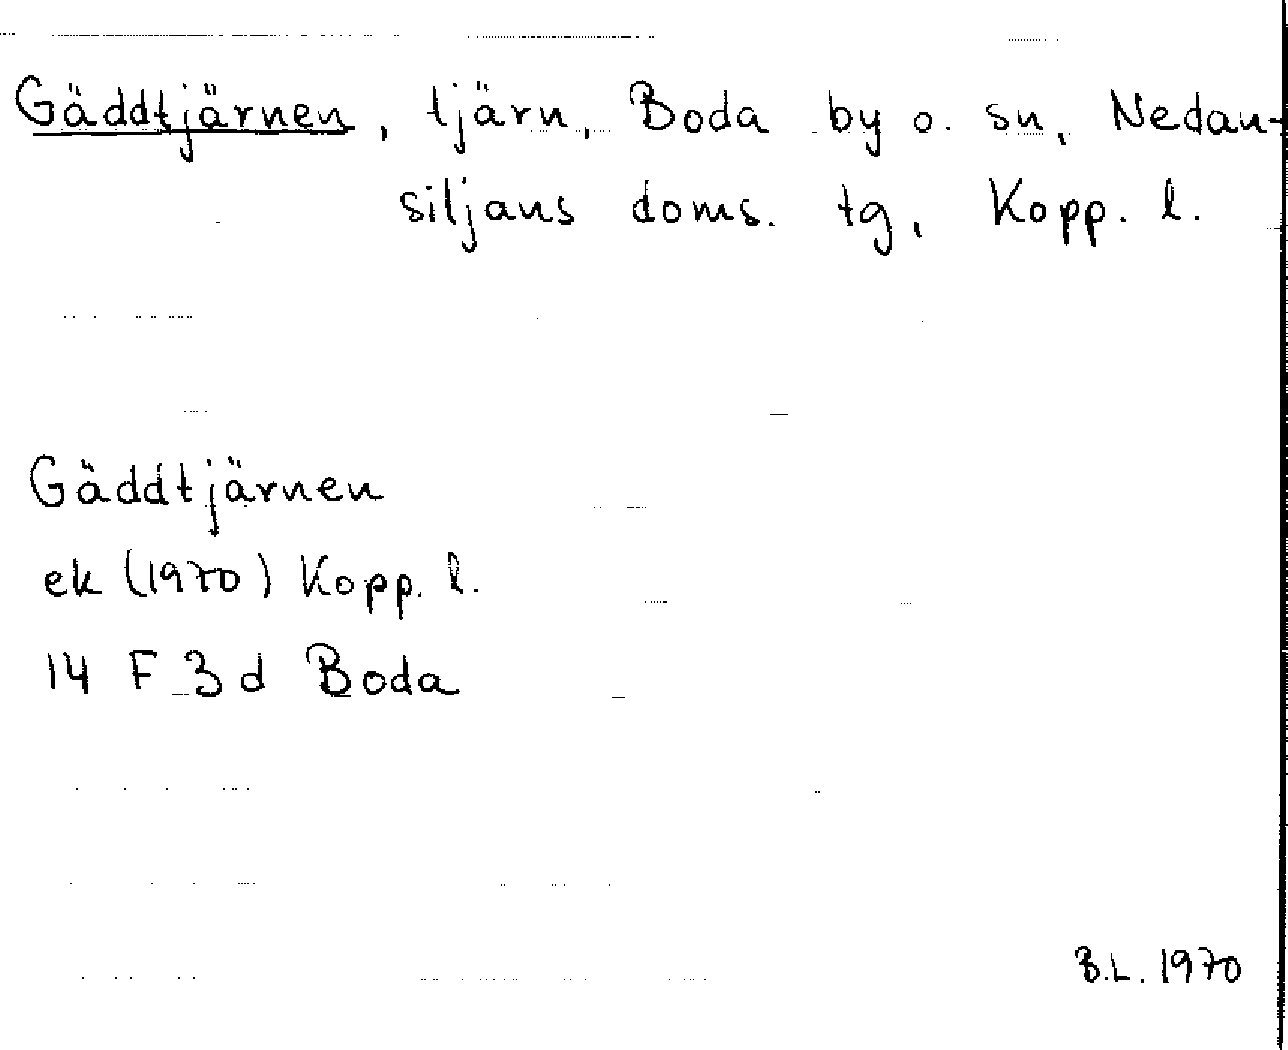 Gäddtjärnen, tjärn, Boda by o. sn, Nedan-
siljans doms. tg, Kopp. l.
Gäddtjärnen
ek (1970) Kopp. l.
14 F 3 d Boda
B.L. 1970